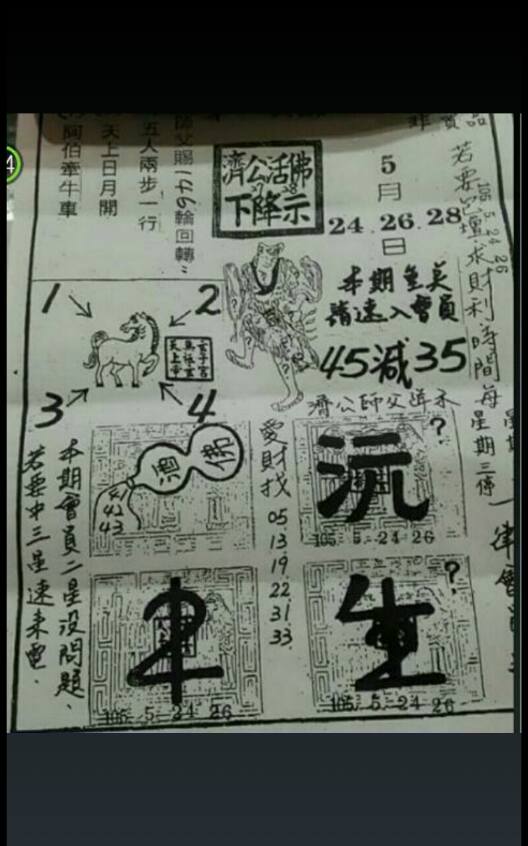 濟公活佛
下降示
5月
24.26.28
日
師父賜149輪回轉"
五人兩步一行
天上日月開
阿伯牽牛車
若要品壇求財利時間每星期三停
105.5.24 26
本期奎英
請速入會員
45減35
濟公師父降示
1
2
3
4
愛財找
05
13
19
22
31
33
酒
佛
41
42
43
沅
?
105.5.24 26
105.5.24 26
生
?
105.5.24 26
本期會員二星沒問題、
若要中三星速來電.